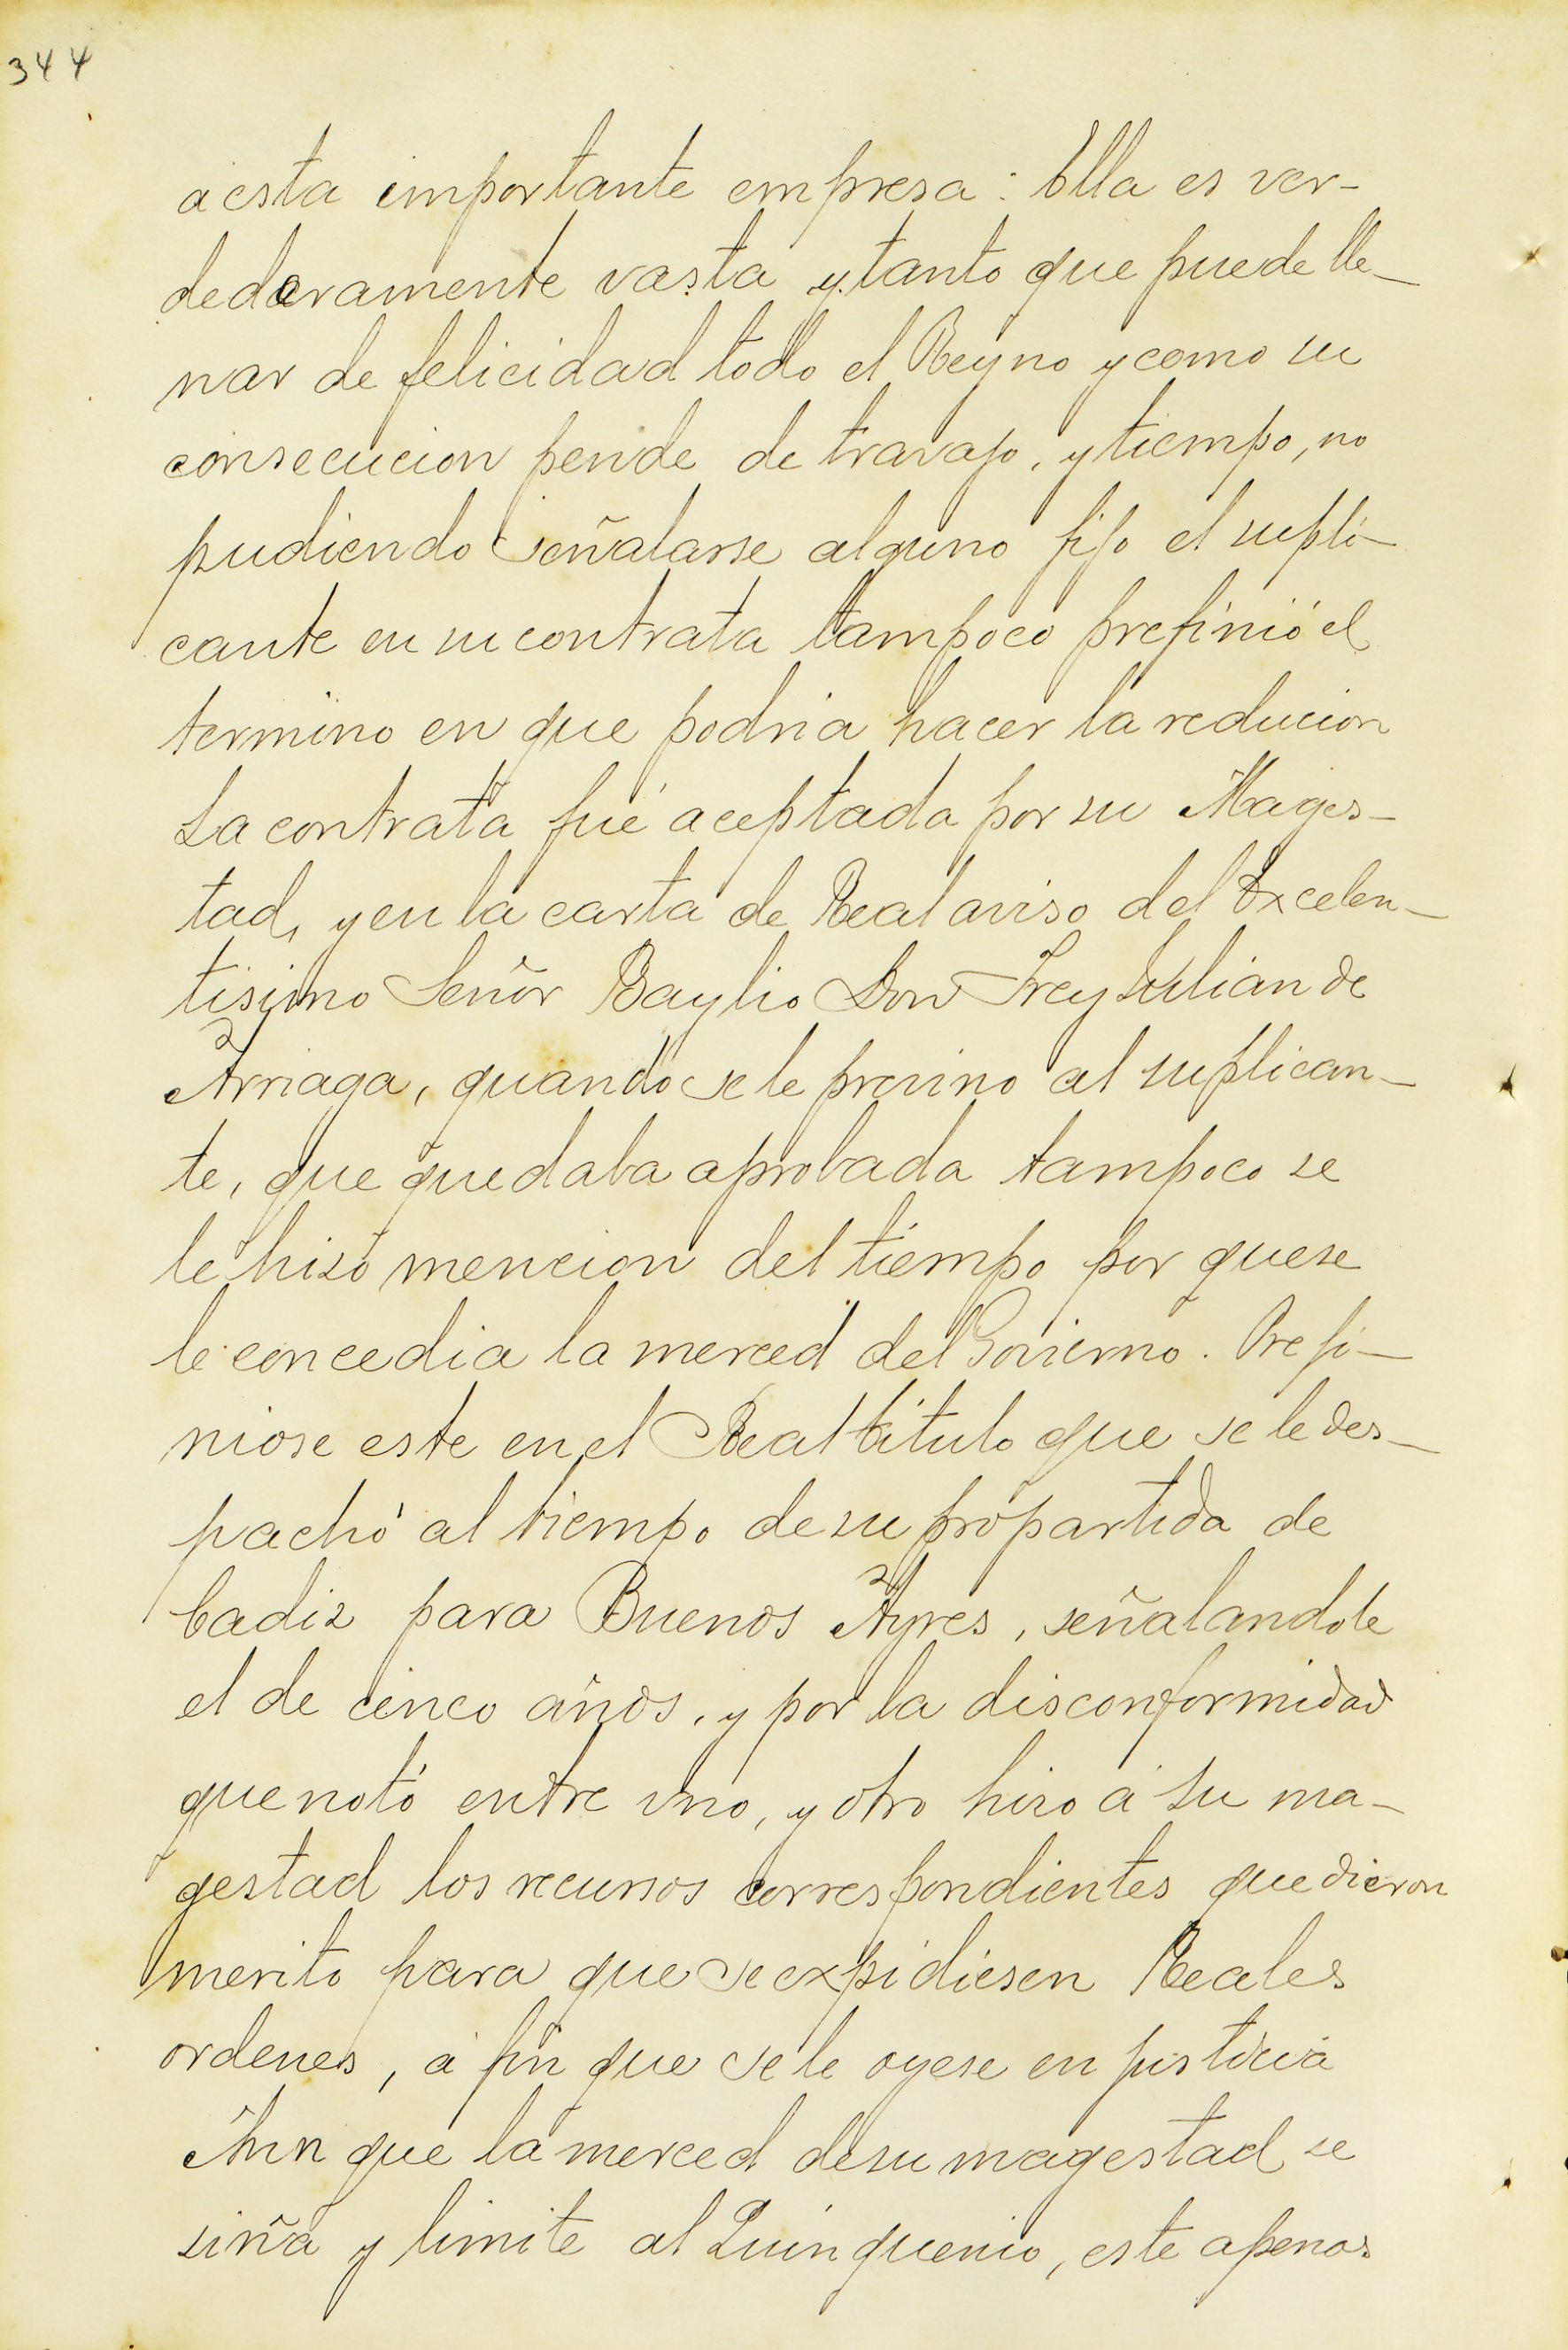 344
a esta importante empresa: Ella es ver-
dederamente vasta y tanto que puede lle-
nar de felicidad todo el Reyno y como su
consecucion pende de travajo, y tiempo, no
pudiendo señalarse alguno fijo el supli-
cante en su contrata tampoco prefinió el
termino en que podria hacer la reducion
La contrata fué aceptada por su Mages-
tad, y en la carta de Real aviso del Excelen-
tisimo Señor Baylio Don Frey Julian de
Arriaga, quando se le previno al suplican-
te, que quedaba aprobada tampoco se
le hiso mencion del tiempo por que se
le concedia la merced del Govierno. Prefi-
niose este en el Real titulo que se le des-
pachó al tiempo de su propartida de
Cadiz para Buenos Ayres, señalandole
el de cinco años, y por la disconformidad
que notó entre uno, y otro hizo á su ma-
gestad los recursos correspondientes que dieron
merito para que se expidiesen Reales
ordenes, á fin que se le oyese en justicia
Aun que la merced de su magestad se
siña y limite al Quinquenio, este apenas